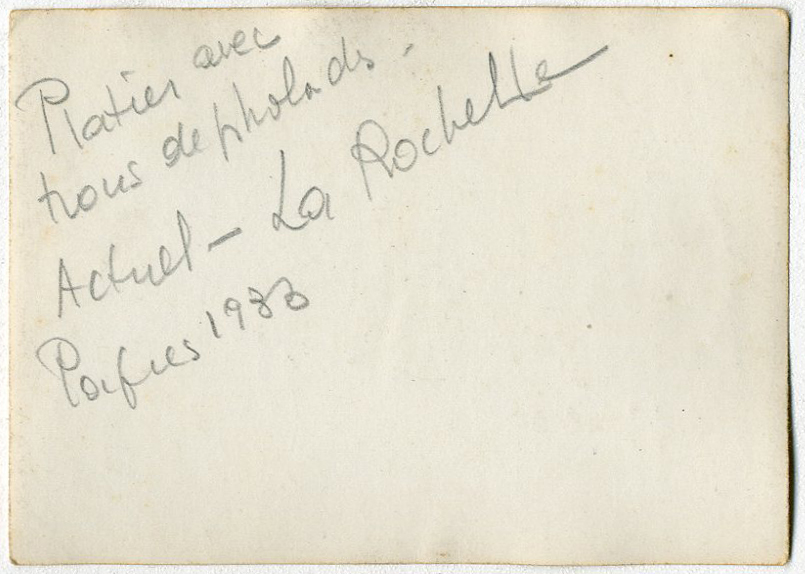 Platier avec
trous de pholads.
Actuel - La Rochelle
Pâques 1933